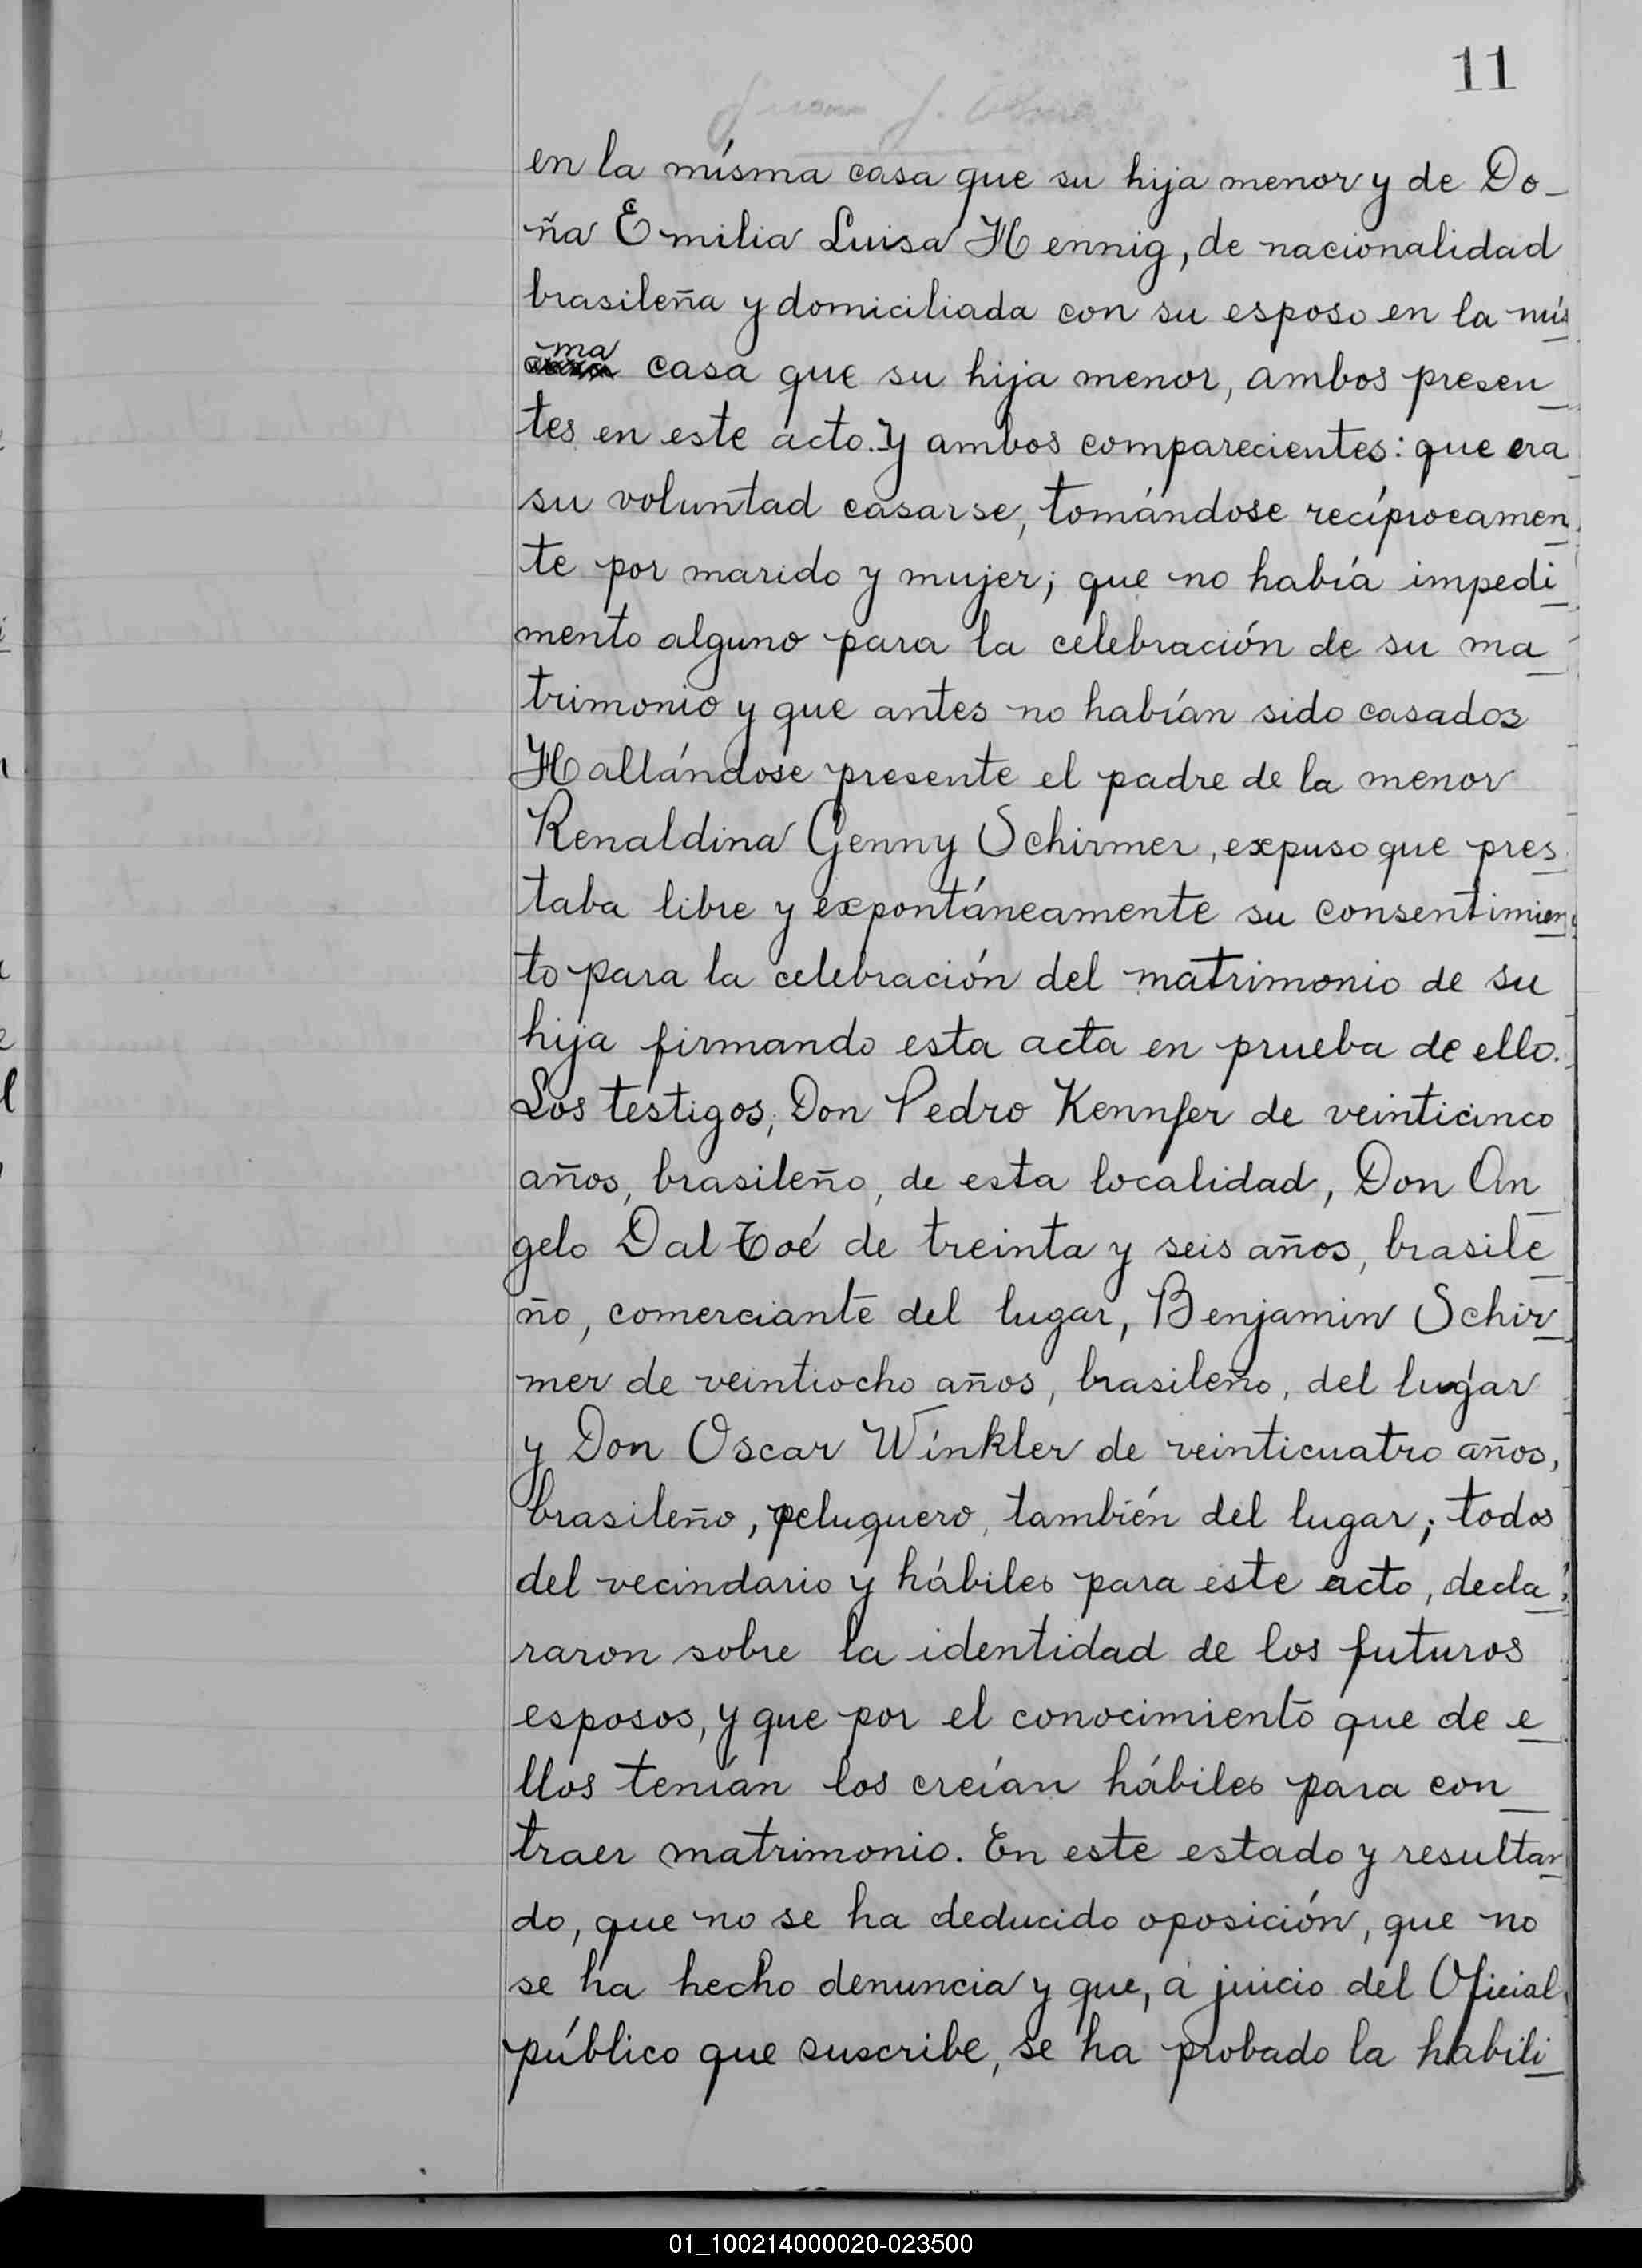 11
en la misma casa que su hija menor y de Do-
ña Emilia Luisa Hennig, de nacionalidad
brasileña y domiciliada con su esposo en la mis
ma casa que su hija menor, ambos presen
tes en este acto. Y ambos comparecientes: que era
su voluntad casarse, tomándose recíprocamen
te por marido y mujer; que no había impedi
mento alguno para la celebración de su ma
trimonio y que antes no habían sido casados
Hallándose presente el padre de la menor
Renaldina Genny Schirmer, expuso que pres
taba libre y expontáneamente su consentimien
to para la celebración del matrimonio de su
hija firmando esta acta en prueba de ello.
Los testigos, Don Pedro Kennfer de veinticinco
años, brasileño, de esta localidad, Don An
gelo Dal Toé de treinta y seis años, brasile
ño, comerciante del lugar, Benjamin Schir
mer de veintiocho años, brasileño, del lugar
y Don Oscar Winkler de veinticuatro años,
brasileño, peluquero, también del lugar; todos
del vecindario y hábiles para este acto, decla
raron sobre la identidad de los futuros
esposos, y que por el conocimiento que de e
llos tenían los creían hábiles para con
traer matrimonio. En este estado y resultan
do, que no se ha deducido oposición, que no
se ha hecho denuncia y que, a juicio del Oficial
público que suscribe, se ha probado la habili
01_100214000020-023500